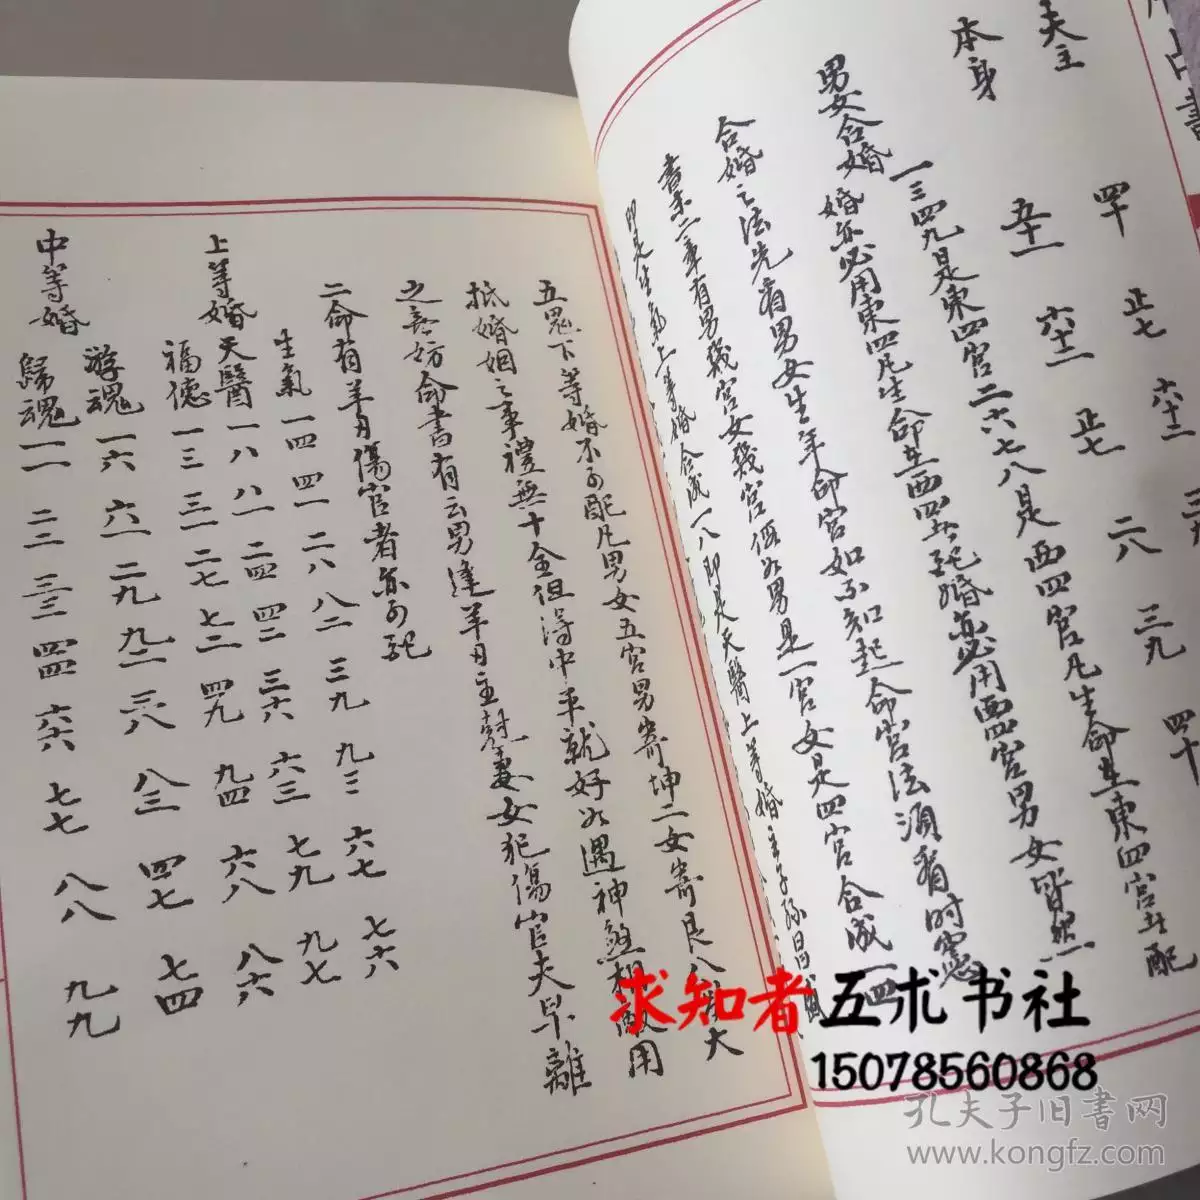 占書
夫主 四十 正七 六十二 三九
本身 五十一 六十二 正七 二八 三九 四十
男女合婚
一三四九是東四宮二六七八是西四宮凡生命在東四宮女配
婚亦必用東四凡生命在西四女配婚亦必用西四宮男女皆然
合婚之法先有男女生年命宮如不知起命宮法須看时憲
書末二章有男幾宮女幾宮假如男是一宮女是四宮合成一四
即是生氣上等婚合成一八即是天醫上等婚主子孫昌盛
五鬼下等婚不可配凡男女五宮男寄坤二女寄艮八
大抵婚姻之事禮無十全但得中平就好如遇神煞相敵用
之無妨命書有云男逢羊刃主尅妻女犯傷官夫早離
二命有羊刃傷官者亦可配
上等婚
生氣 一四 四一 二八 八二 三九 九三 六七 七六
天醫 一八 八一 二四 四二 三六 六三 七九 九七
福德 一三 三一 二七 七二 四九 九四 六八 八六
中等婚
游魂 一六 六一 二九 九二 三八 八三 四七 七四
歸魂 一一 二二 三三 四四 六六 七七 八八 九九
求知者五术书社
15078560868
孔夫子旧书网
www.kongfz.com